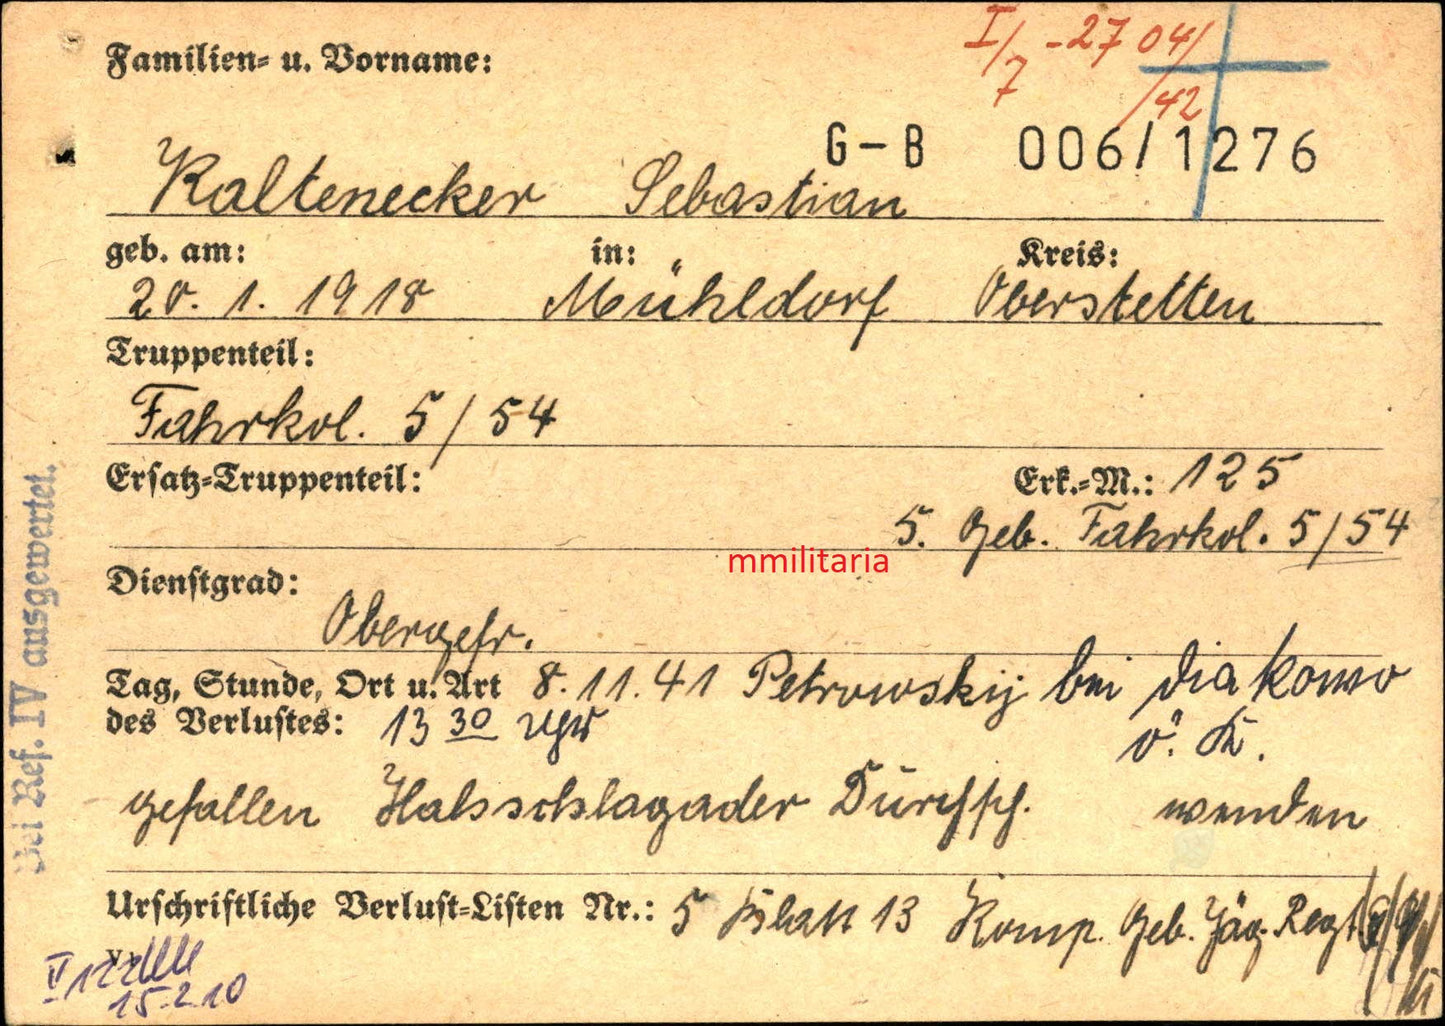 I/7 -2704/42
Familien= u. Vorname:
G-B 006/1276
Kaltenecker Sebastian
geb. am: in: Kreis:
20. 1. 1918 Mühldorf Oberstetten
Truppenteil:
Fahrkol. 5/54
Ersatz=Truppenteil: Erk.=M.: 125
5. Geb. Fahrkol. 5/54
mmilitaria
Dienstgrad:
Obergefr.
Tag, Stunde, Ort u. Art 8. 11. 41 Petrowskij bei Diakowo
des Verlustes: 13 30 Uhr ö. K.
gefallen Halsschlagader Durchsch. wenden
Urschriftliche Verlust=Listen Nr.: 5 Blatt 13 Komp. Geb. Jäg. Regt.
15.2.10
Bei Ref. IV ausgewertet.